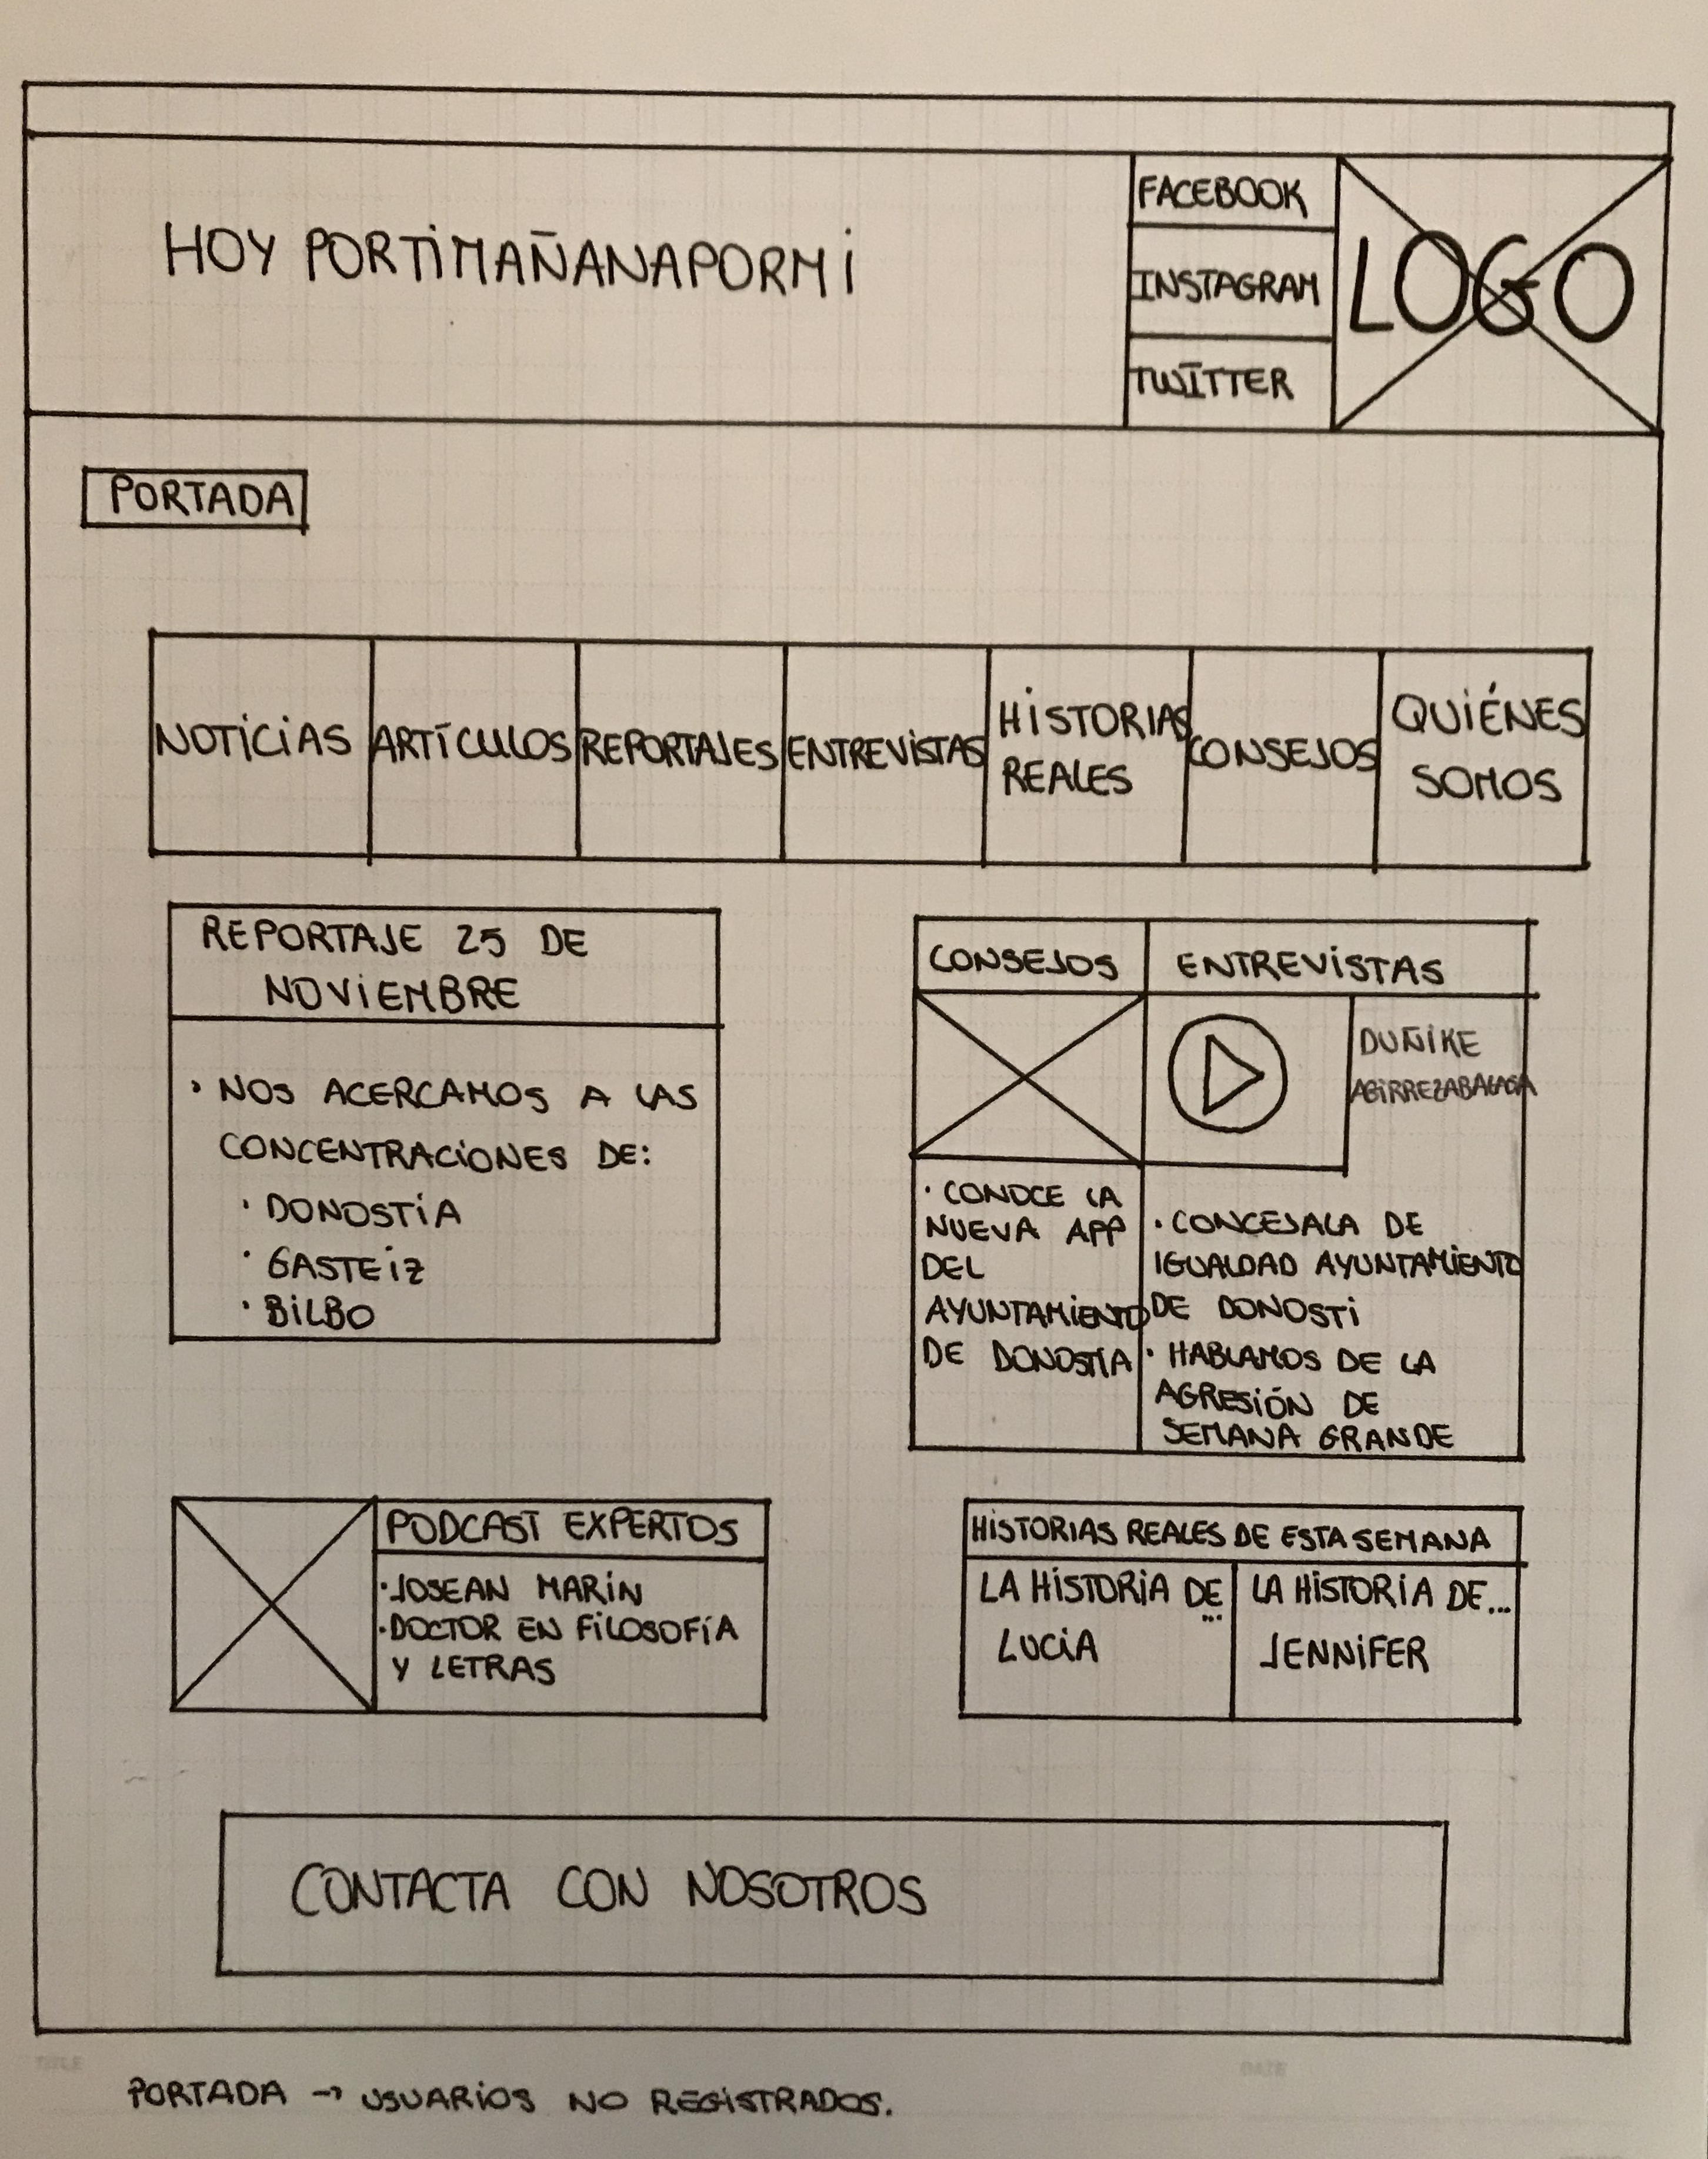 HOY PORTIMAÑANAPORMI
FACEBOOK
INSTAGRAM
TWITTER
LOGO
PORTADA
NOTICIAS
ARTÍCULOS
REPORTAJES
ENTREVISTAS
HISTORIAS
REALES
CONSEJOS
QUIÉNES
SOMOS
REPORTAJE 25 DE
NOVIEMBRE
· NOS ACERCAMOS A LAS
CONCENTRACIONES DE:
· DONOSTIA
· GASTEIZ
· BILBO
CONSEJOS
· CONOCE LA
NUEVA APP
DEL
AYUNTAMIENTO
DE DONOSTIA
ENTREVISTAS
DUÑIKE
AGIRREZABALAGA
· CONCEJALA DE
IGUALDAD AYUNTAMIENTO
DE DONOSTI
· HABLAMOS DE LA
AGRESIÓN DE
SEMANA GRANDE
PODCAST EXPERTOS
· JOSEAN MARIN
· DOCTOR EN FILOSOFÍA
Y LETRAS
HISTORIAS REALES DE ESTA SEMANA
LA HISTORIA DE
...
LUCIA
LA HISTORIA DE...
JENNIFER
CONTACTA CON NOSOTROS
TITLE
DATE
PORTADA → USUARIOS NO REGISTRADOS.